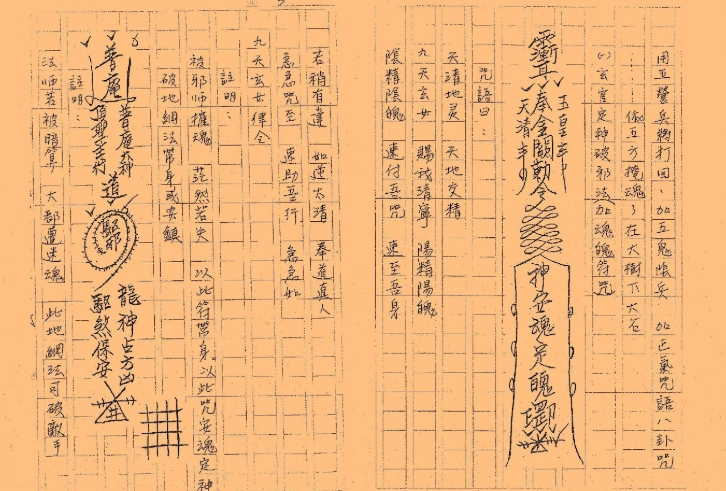 用五營兵將打回，加五鬼陰兵 加正氣咒語八卦咒
在大樹下大石
㈠玄官定神破邪法加魂魄符咒
玉皇
奉金闕勅令
天清
神安魂定魄
咒語曰：
天清地灵 天地交精
九天玄女 賜我清寧 陽精陽魄
陰精陰魄 速付吾咒 速至吾身
若稍有違 如逆太清 奉道真人
急急咒至 速助吾行 急急如
九天玄女律令
註明：
被邪师摧魂 茫然若失 以此符帶身。以此咒安魂定神
破地網法帶身或安鎮
普庵
普庵大神
道
驅邪
龍神占方凶
驅煞保安
註明：
法师若被暗算 大部遭迷魂 此地網法可破敵手